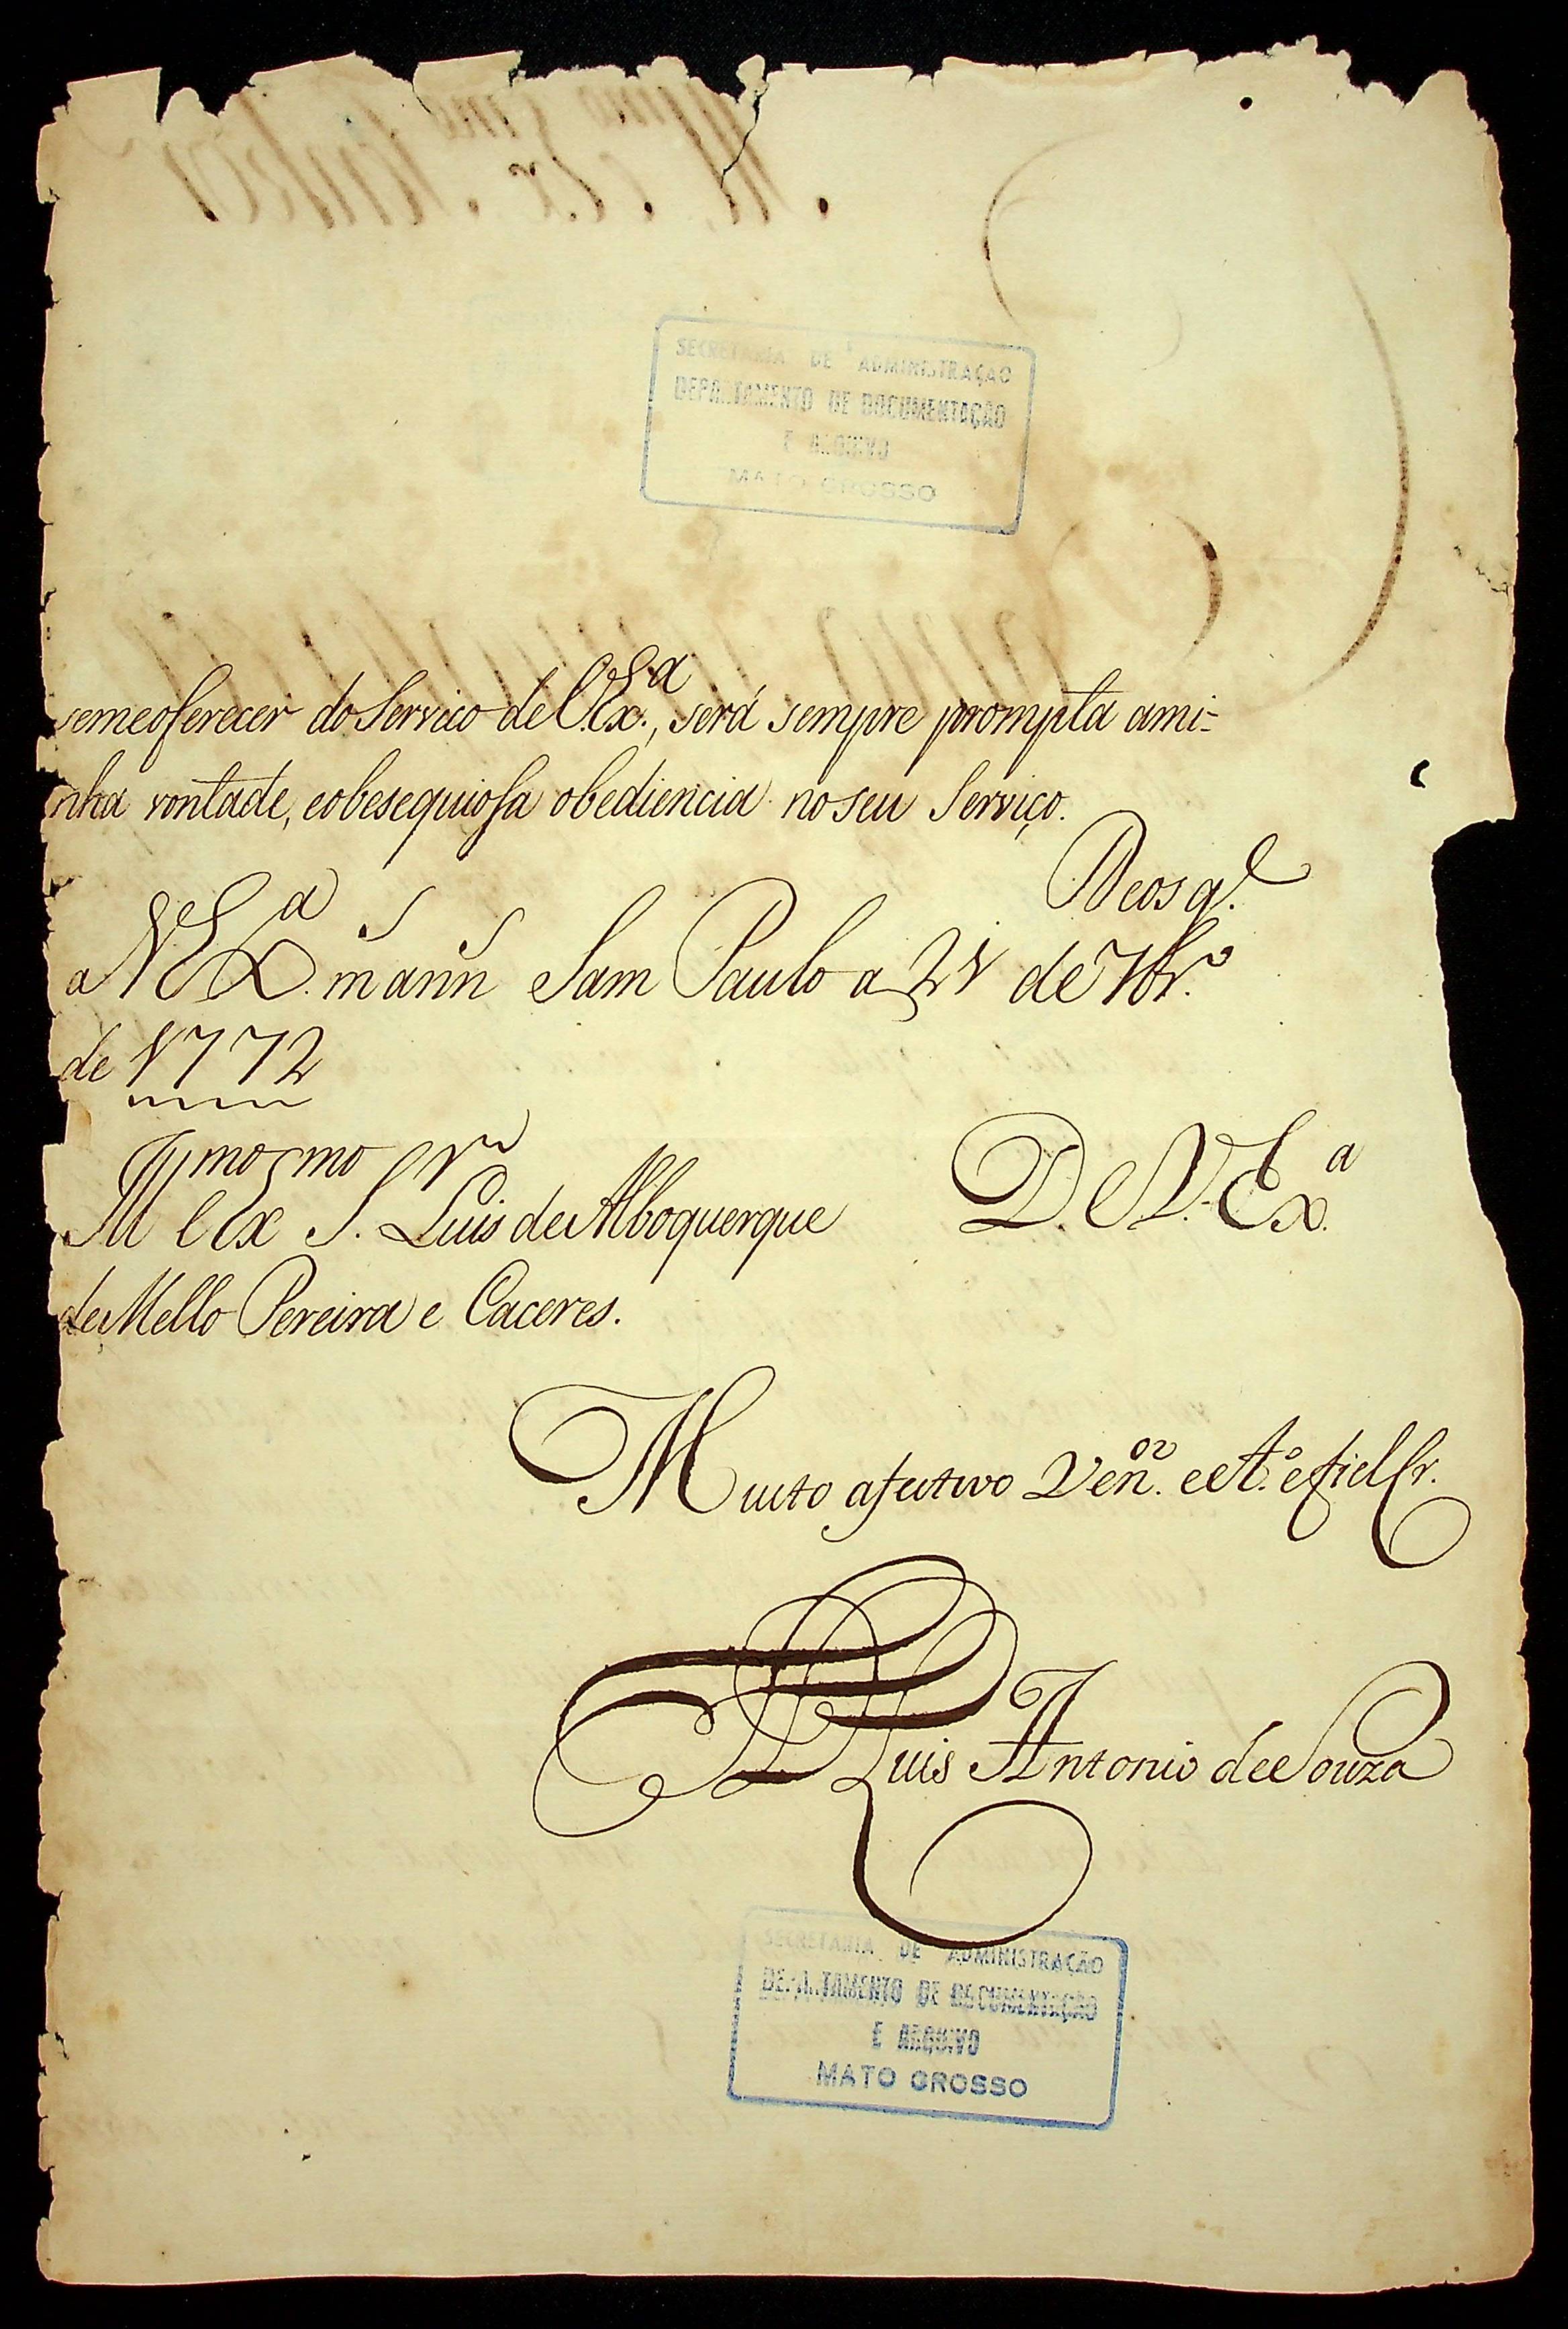 SECRETARIA DE ADMINISTRAÇÃO
DEPARTAMENTO DE DOCUMENTAÇÃO
E ARQUIVO
MATO GROSSO
semeoferecer do Serviço de V.Ex.ª, será sempre prompta ami-
nha vontade, eobesequiosa obediencia no seu Serviço.
Deos g.e
a V Ex.ª m.s ann.s Sam Paulo a 21 de 7br.o
de 1772
Ill.mo e Ex.mo S.r Luis de Alboquerque
D. V. Ex.ª
de Mello Pereira e Caceres.
Muito afectivo Ven.or e A.o e fiel Cr.
D. Luis Antonio de Souza
SECRETARIA DE ADMINISTRAÇÃO
DEPARTAMENTO DE DOCUMENTAÇÃO
E ARQUIVO
MATO GROSSO